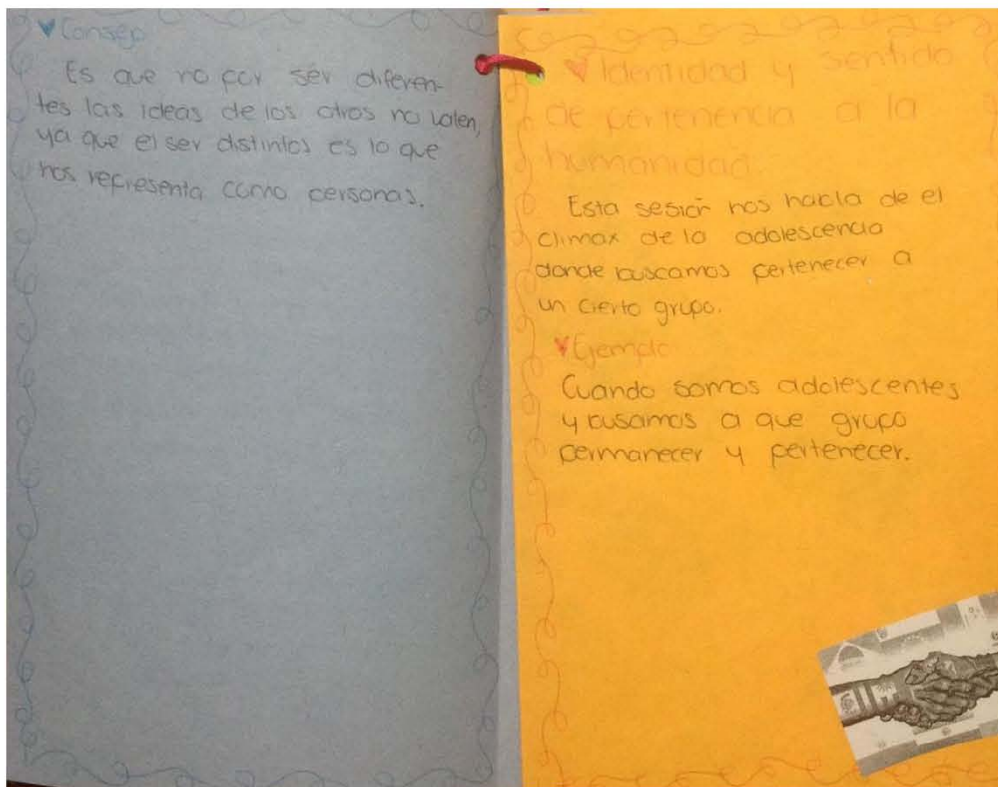 Consejo
Es que no por ser diferen-
tes las ideas de los otros no valen,
ya que el ser distintos es lo que
nos representa como personas.
Identidad y sentido
de pertenencia a la
humanidad.
Esta sesión nos habla de el
climax de la adolescencia
donde buscamos pertenecer a
un cierto grupo.
Ejemplo
Cuando somos adolescentes
y busamos a que grupo
permanecer y pertenecer.